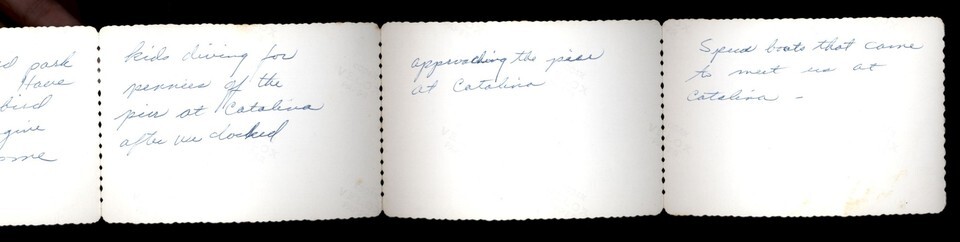 d park
Have
bird
give
ome
kids diving for
pennies off the
pier at Catalina
after we docked
approaching the pier
at Catalina
Speed boats that came
to meet us at
Catalina -